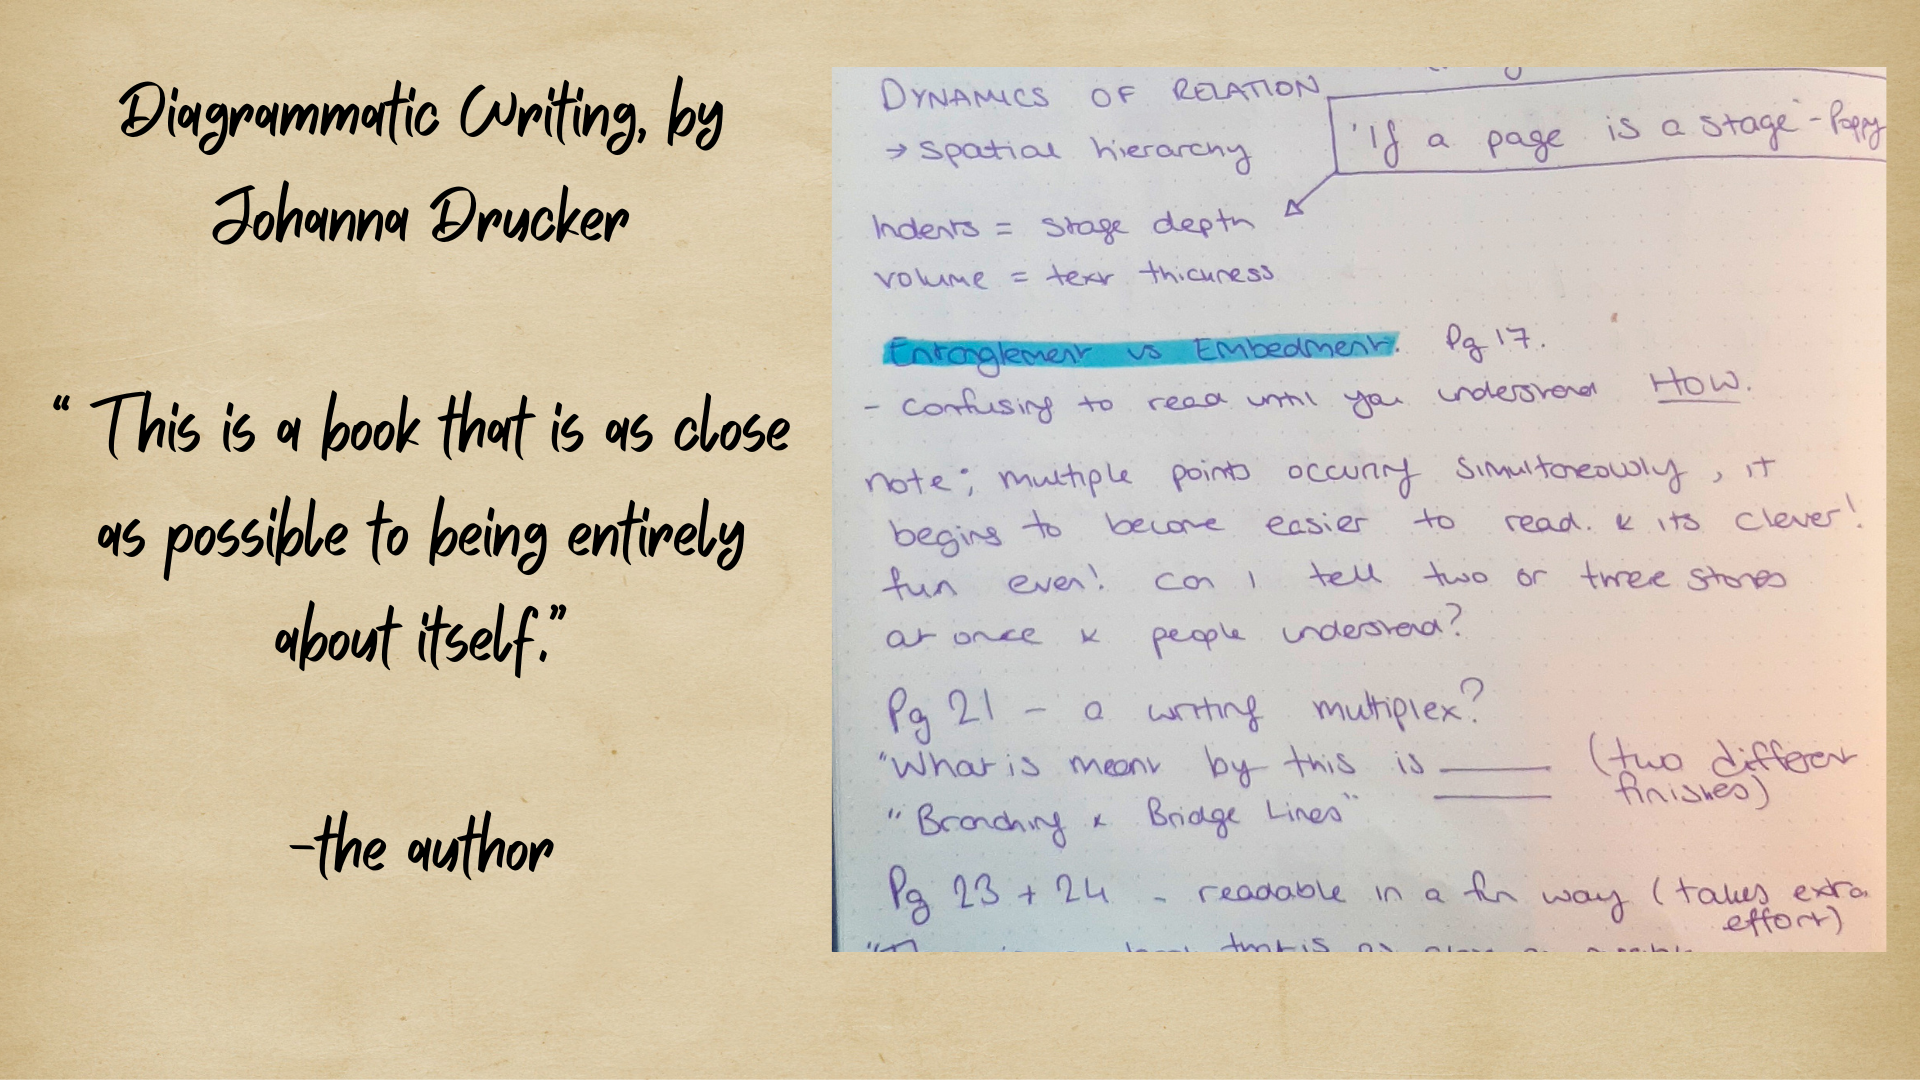 Diagrammatic Writing, by
Johanna Drucker
“ This is a book that is as close
as possible to being entirely
about itself.”
-the author
DYNAMICS OF RELATION
→ Spatial hierarchy
'If a page is a stage" - Poppy
Indents = stage depth
volume = text thickness
Entanglement vs Embedment. Pg 17.
- confusing to read until you understand HOW.
note; multiple points occuring simultaneously, it
begins to become easier to read. & its clever!
fun even! can I tell two or three stories
at once & people understand?
Pg 21 - a writing multiplex?
"What is meant by this is (two different
finishes)
"Branching & Bridge Lines"
Pg 23 + 24 - readable in a fun way (takes extra
effort)